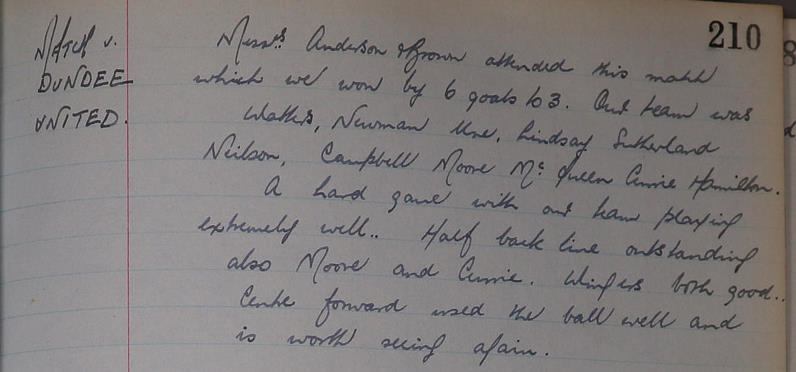 210
MATCH v.
DUNDEE
UNITED.
Messrs Anderson & Brown attended this match
which we won by 6 goals to 3. Our team was
Watters, Newman Ure, Lindsay Sutherland
Neilson, Campbell Moore McQueen Currie Hamilton.
A hard game with our team playing
extremely well.. Half back line outstanding
also Moore and Currie. Wingers both good..
Centre forward used the ball well and
is worth seeing again.
8
d